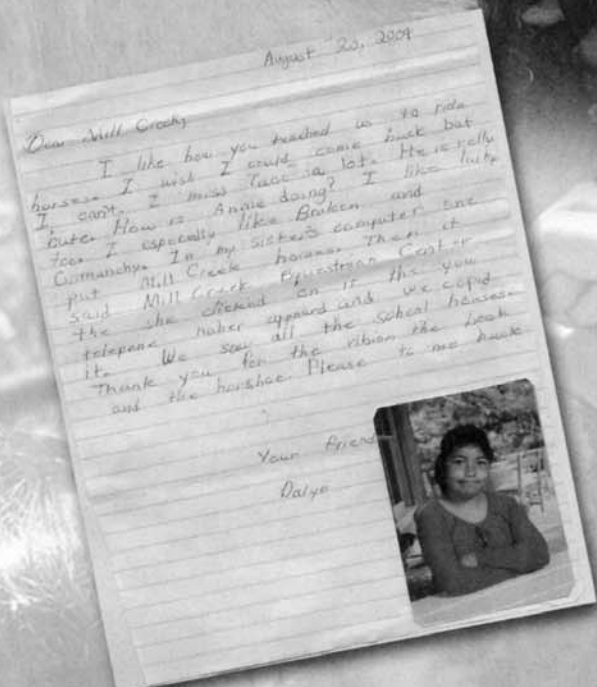 August 20, 2004
Dear Mill Creek,
I like how you teached us to ride
horses. I wish I could come back but
I can't. I miss Taco a lot. He is relly
cute. How is Annie doing? I like
too. I especially like Broken and
Comanchy. In my sister's computer she
put Mill Creek horses. Then it
said Mill Creek Equestrian Center
the she clicked on it the you
telepone nober appeard and we copid
it. We saw all the school horses.
Thank you for the ribion the book
and the horshoe. Please to me
Your friend
Dalyn